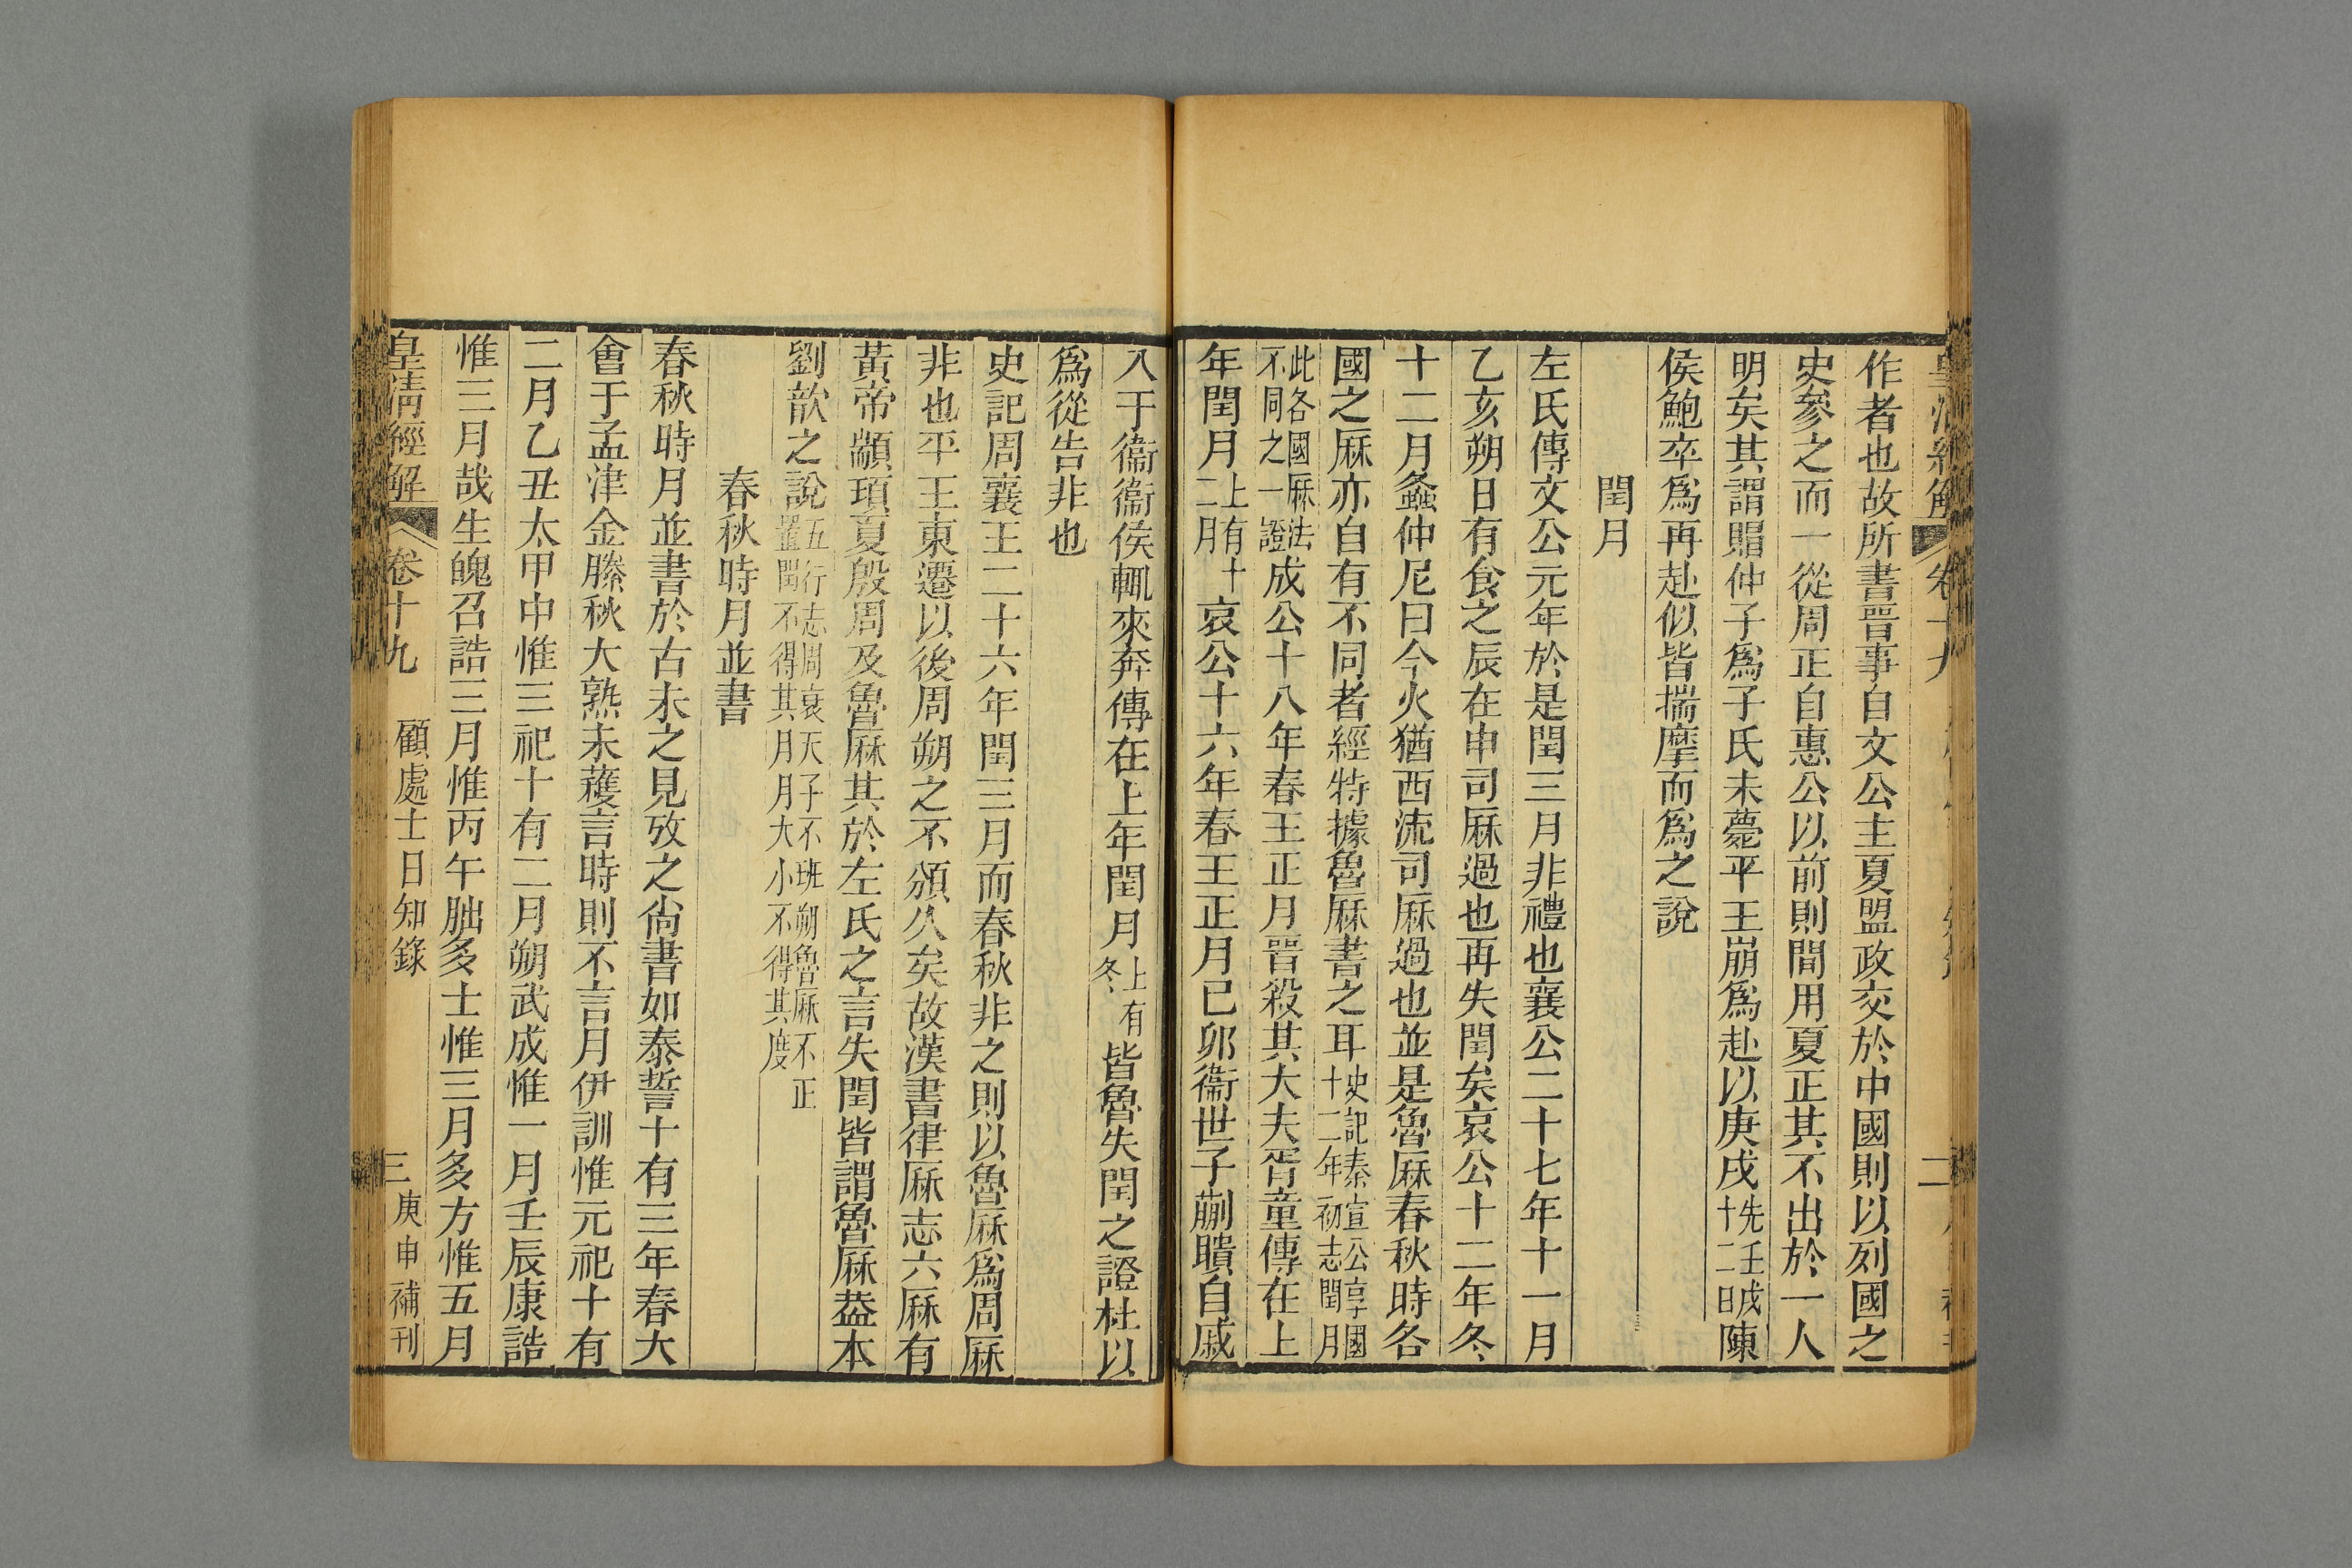 作者也故所書晉事自文公主夏盟政交於中國則以列國之
史參之而一從周正自惠公以前則間用夏正其不出於一人
明矣其謂賵仲子爲子氏未薨平王崩爲赴以庚戌先壬戌十二日陳
侯鮑卒爲再赴似皆揣摩而爲之說
閏月
左氏傳文公元年於是閏三月非禮也襄公二十七年十一月
乙亥朔日有食之辰在申司厤過也再失閏矣哀公十二年冬
十二月螽仲尼曰今火猶西流司厤過也並是魯厤春秋時各
國之厤亦自有不同者經特據魯厤書之耳史記秦宣公享國十二年初志閏月
此各國厤法不同之一證成公十八年春王正月晉殺其大夫胥童傳在上
年閏月上有十二月哀公十六年春王正月己卯衞世子蒯聵自戚
入于衞衞侯輒來奔傳在上年閏月上有冬皆魯失閏之證杜以
爲從告非也
史記周襄王二十六年閏三月而春秋非之則以魯厤爲周厤
非也平王東遷以後周朔之不頒久矣故漢書律厤志六厤有
黃帝顓頊夏殷周及魯厤其於左氏之言失閏皆謂魯厤葢本
劉歆之說五行志周衰天子不班朔魯厤不正置閏不得其月月大小不得其度
春秋時月並書
春秋時月並書於古未之見攷之尙書如泰誓十有三年春大
會于孟津金縢秋大熟未穫言時則不言月伊訓惟元祀十有
二月乙丑太甲中惟三祀十有二月朔武成惟一月壬辰康誥
惟三月哉生魄召誥三月惟丙午朏多士惟三月多方惟五月
皇淸經解 卷十九 顧處士日知錄 三 庚申補刊